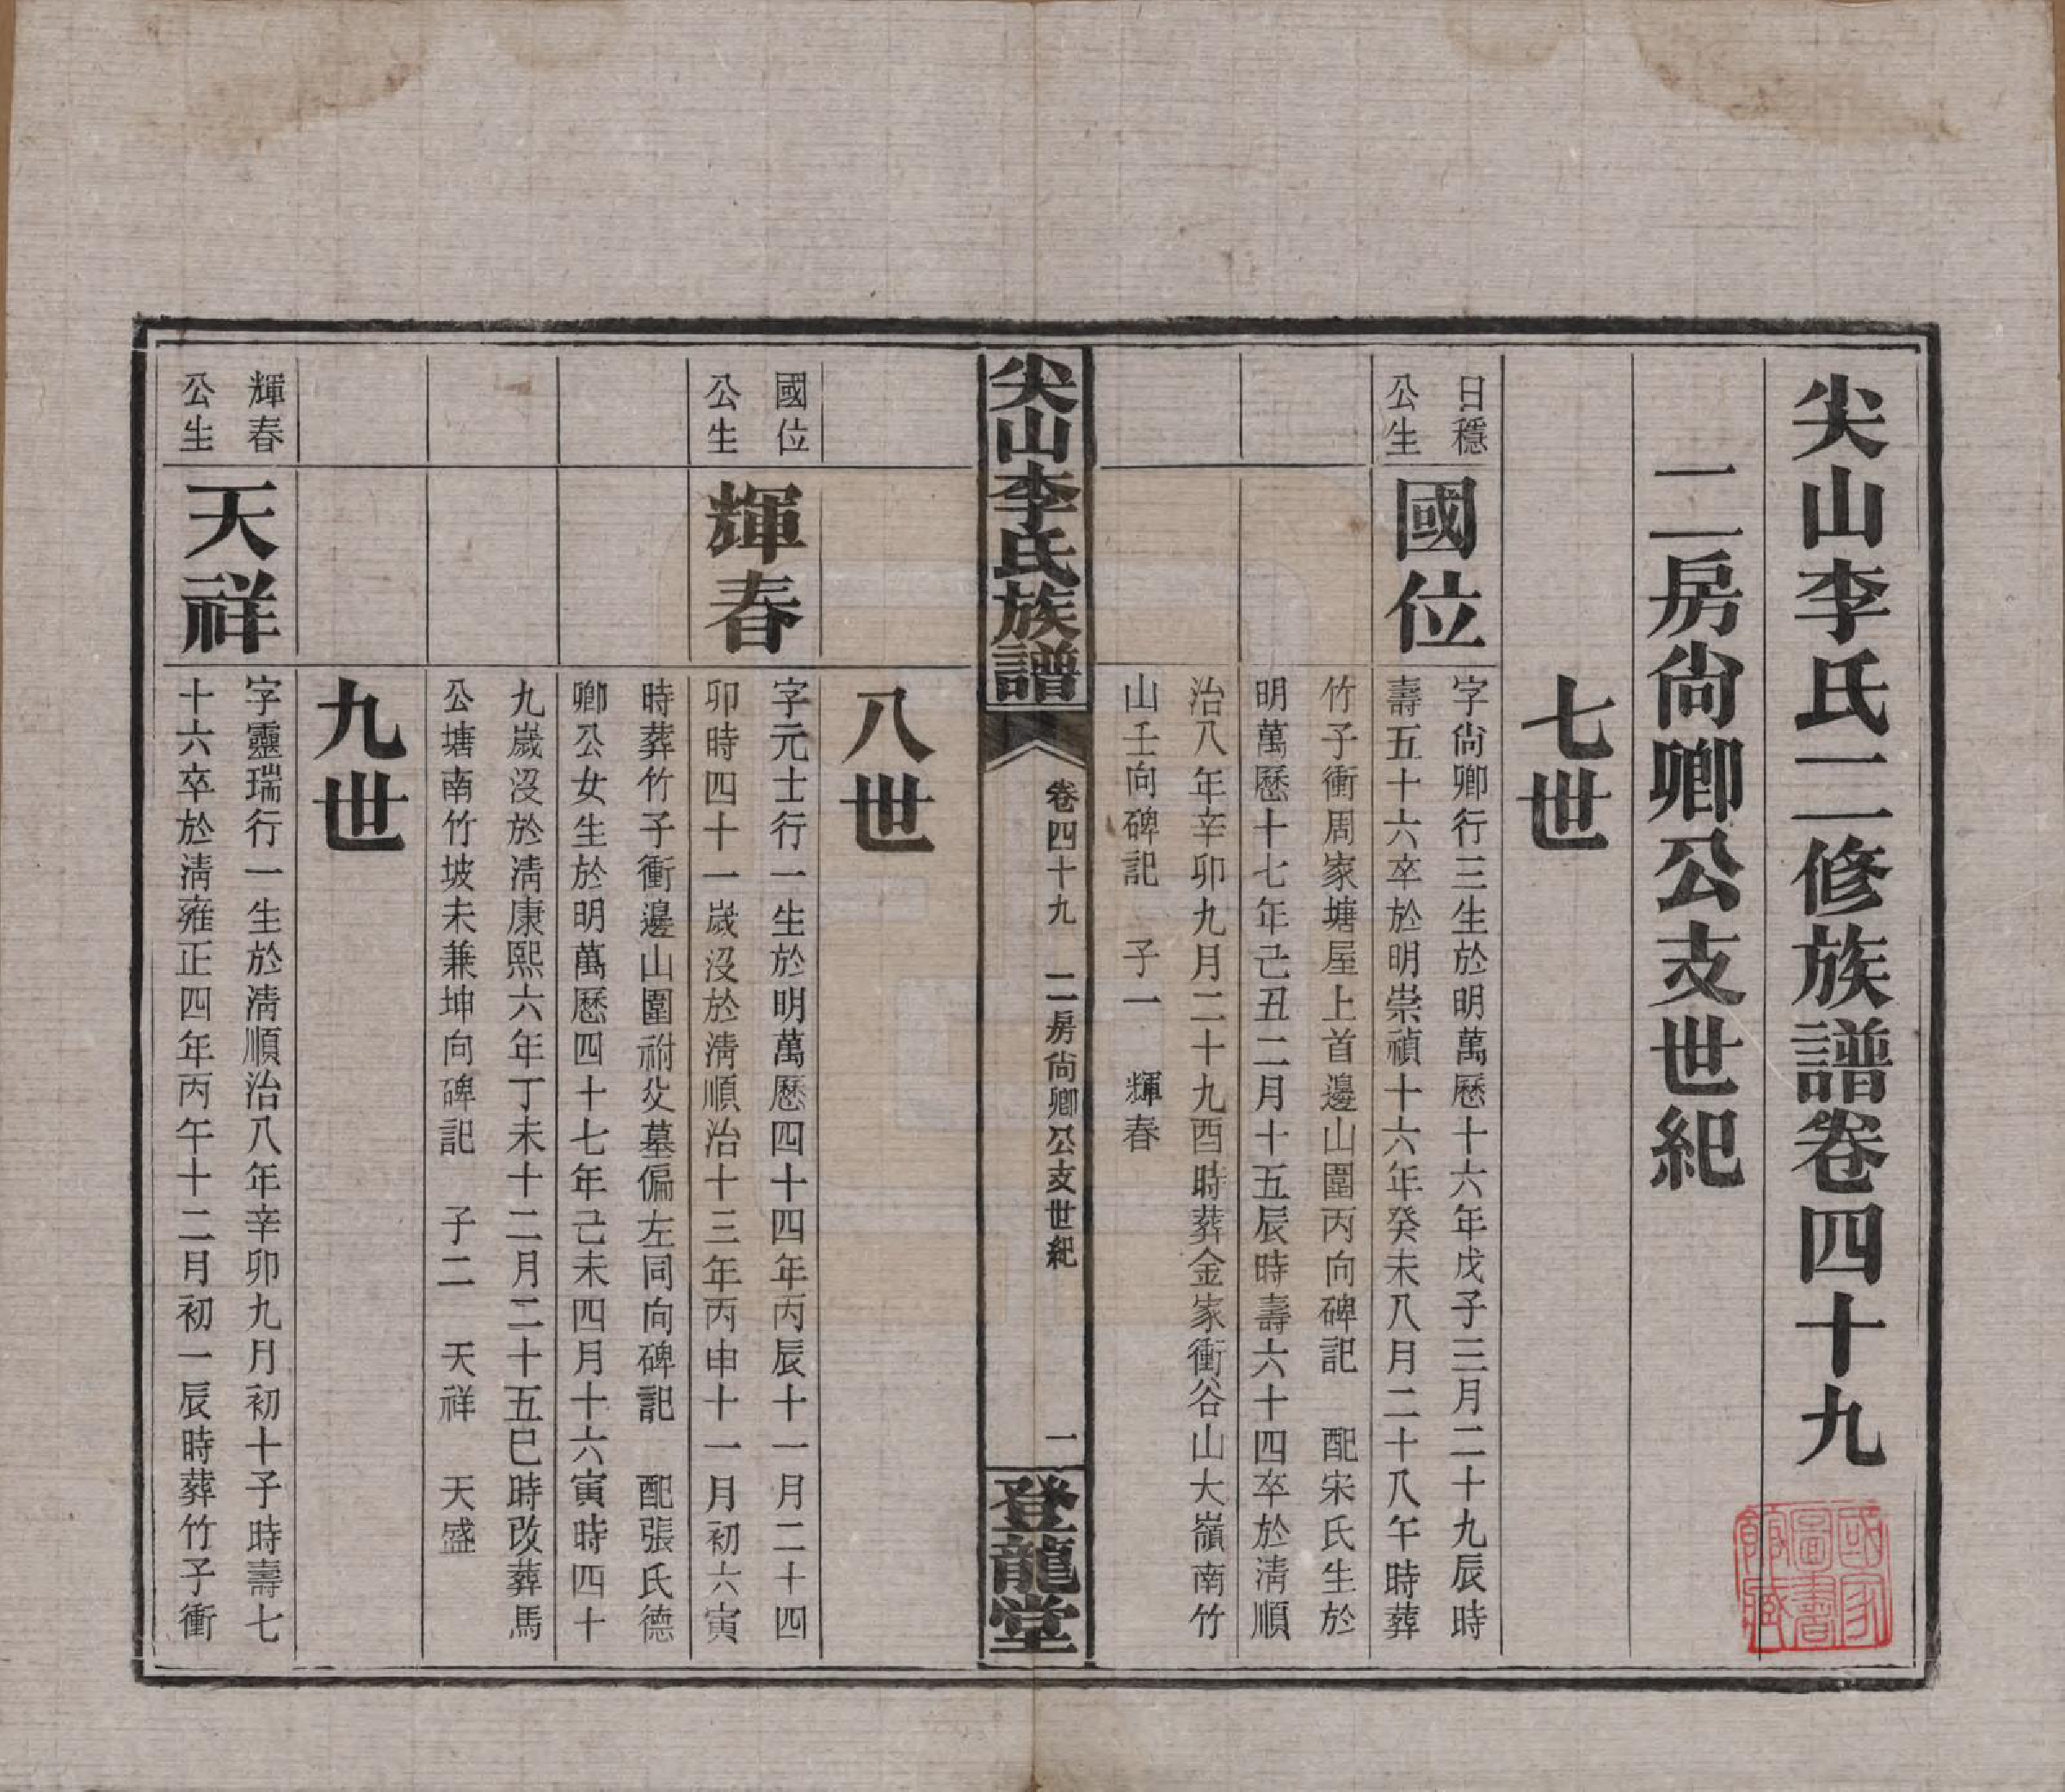 尖山李氏二修族譜卷四十九
二房尙卿公支世紀
七世
日穩
公生
國位
字尙卿行三生於明萬曆十六年戊子三月二十九辰時
壽五十六卒於明崇禎十六年癸未八月二十八午時葬
竹子衝周家塘屋上首邊山圍丙向碑記 配宋氏生於
明萬曆十七年己丑二月十五辰時壽六十四卒於淸順
治八年辛卯九月二十九酉時葬金家衝谷山大嶺南竹
山壬向碑記 子一 輝春
尖山李氏族譜
卷四十九 二房尙卿公支世紀
一
登龍堂
八世
國位
公生
輝春
字元士行一生於明萬曆四十四年丙辰十一月二十四
卯時四十一歲沒於淸順治十三年丙申十一月初六寅
時葬竹子衝邊山圍祔父墓偏左同向碑記 配張氏德
卿公女生於明萬曆四十七年己未四月十六寅時四十
九歲沒於淸康熙六年丁未十二月二十五巳時改葬馬
公塘南竹坡未兼坤向碑記 子二 天祥 天盛
九世
輝春
公生
天祥
字靈瑞行一生於淸順治八年辛卯九月初十子時壽七
十六卒於淸雍正四年丙午十二月初一辰時葬竹子衝
國家
圖書
館藏